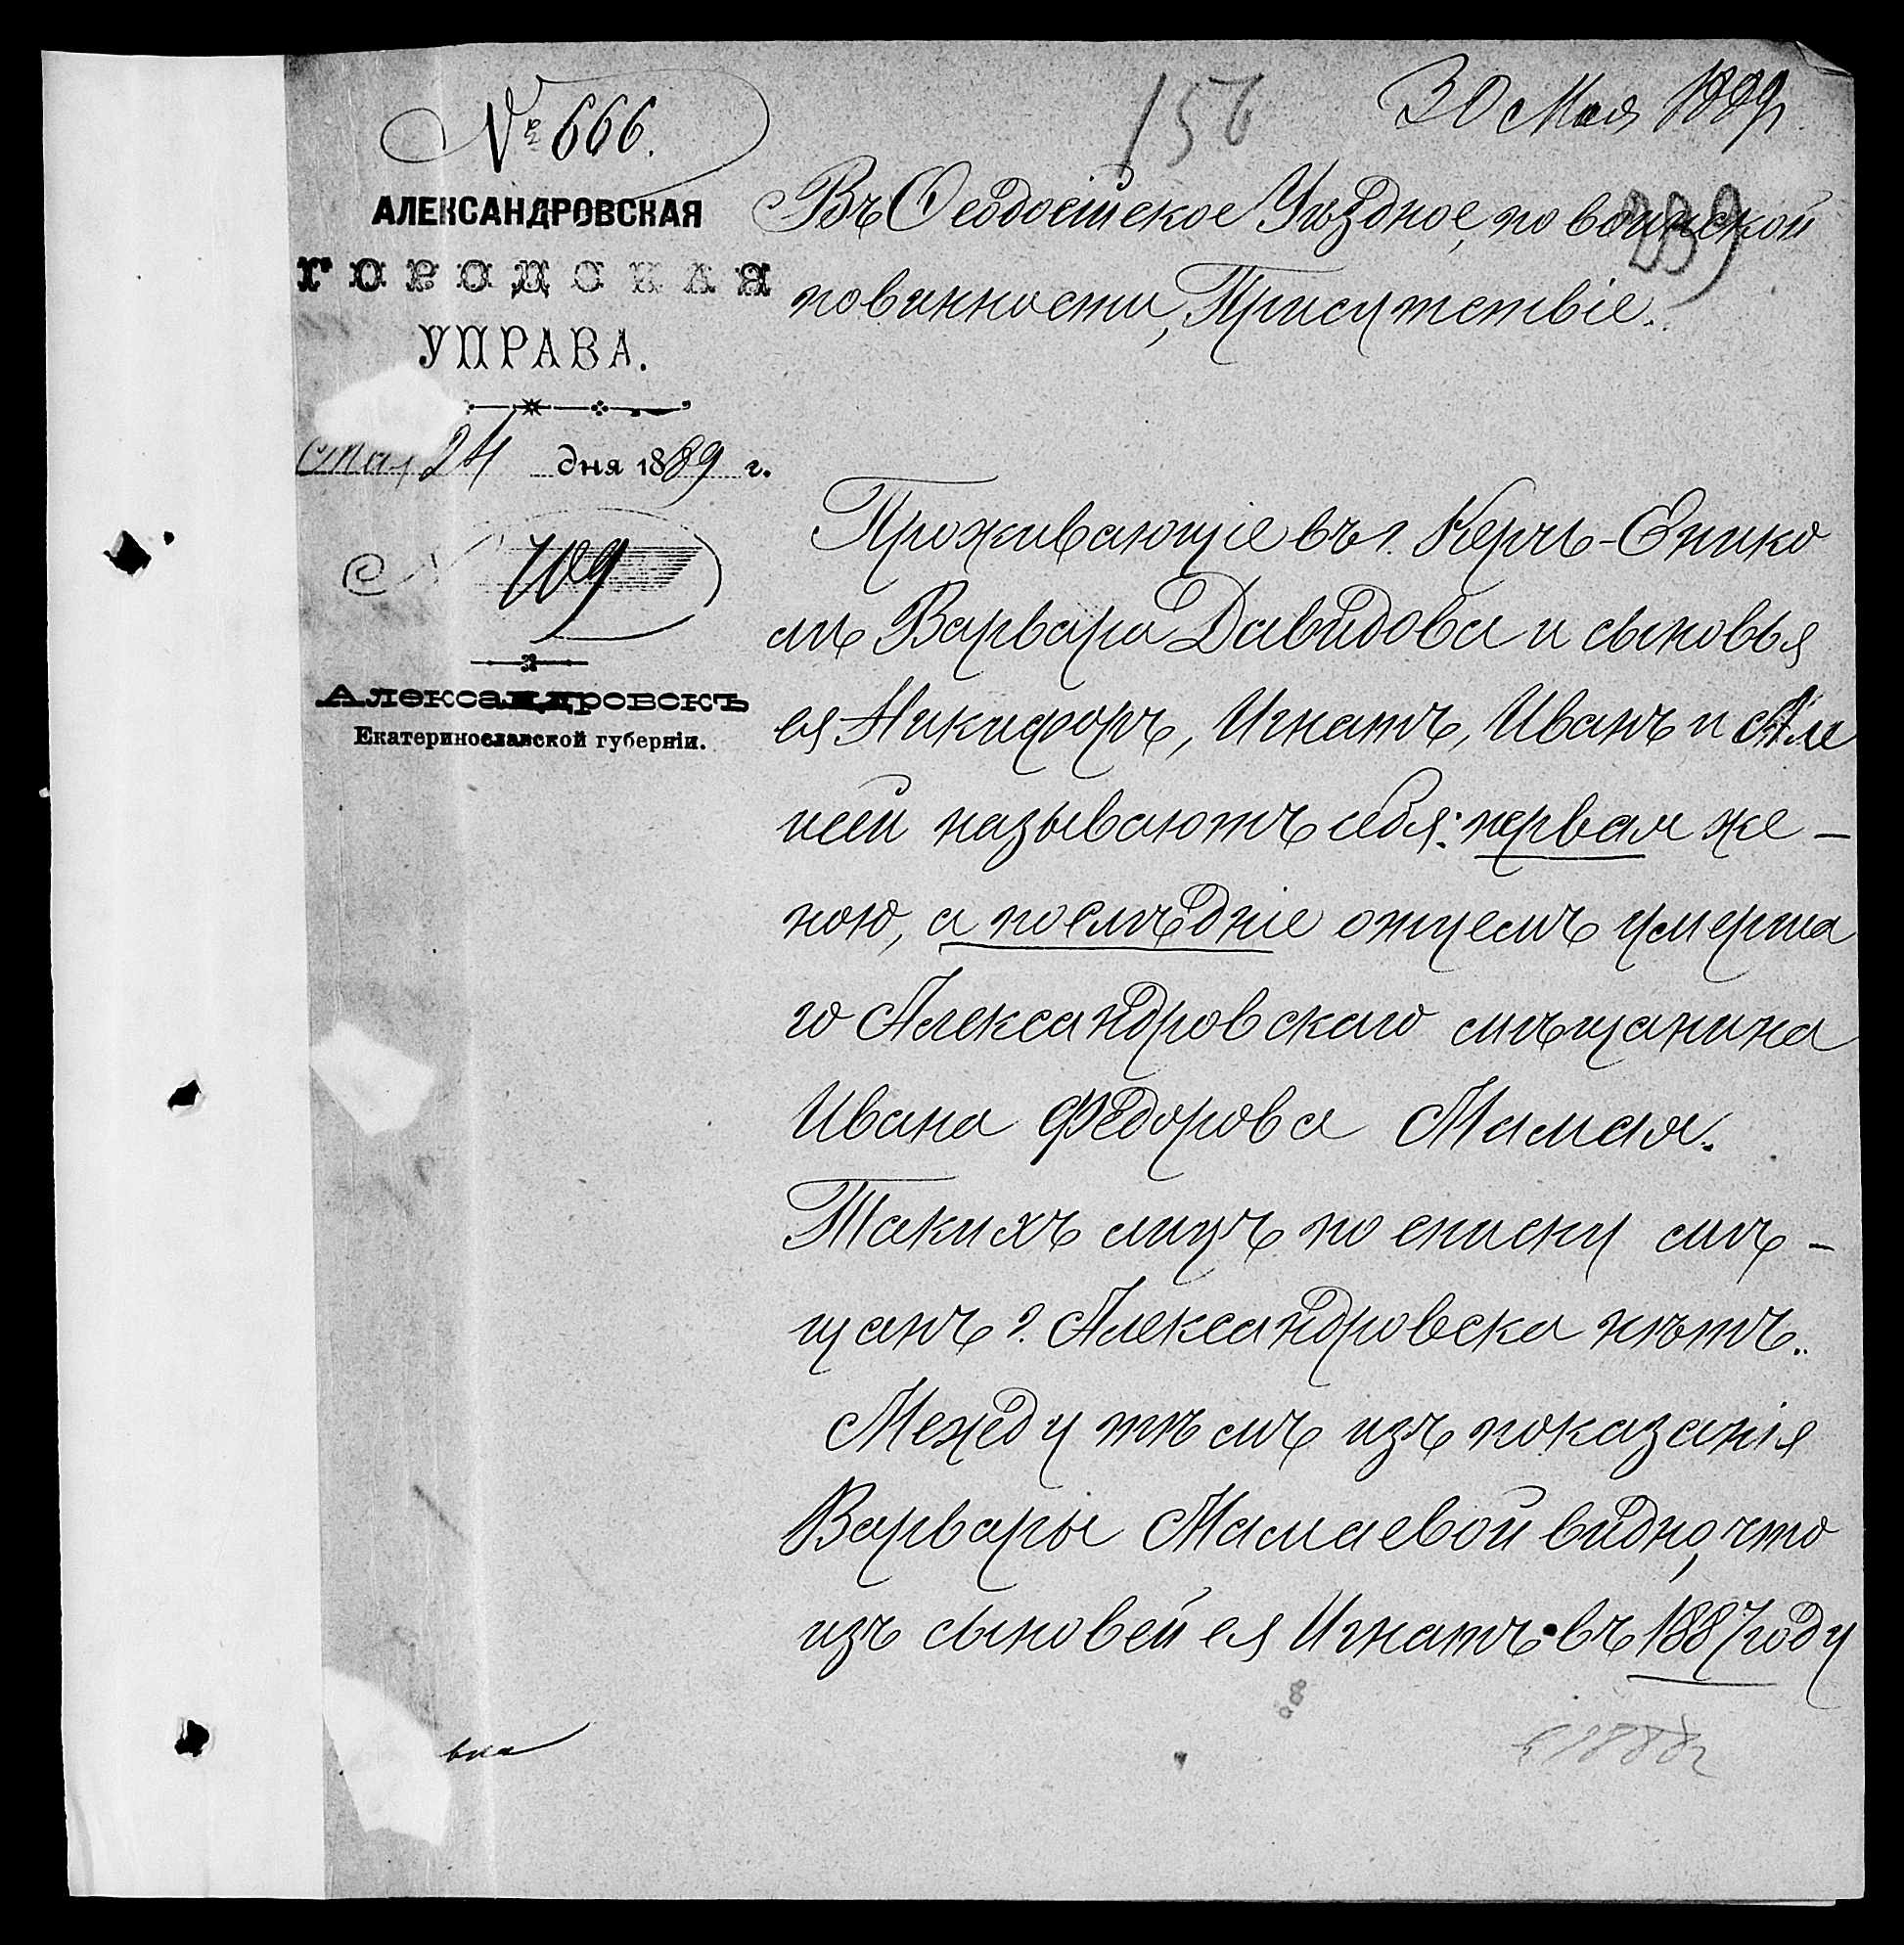 № 666.
АЛЕКСАНДРОВСКАЯ
ГОРОДСКАЯ
УПРАВА.
Мая 24 дня 1889 г.
№ 709
Александровскъ
Екатеринославской губерніи.
156
30 Мая 1889 г.
239
Въ Ѳеодосійское Уѣздное, по воинской
повинности, Присутствіе.
Проживающіе въ г. Керчь-Енико
лѣ Варвара Давидова и сыновья
ея Никифоръ, Игнатъ, Иванъ и Але
ксѣй называютъ себя: первая же-
ною, а послѣдніе отцемъ умерша
го Александровскаго мѣщанина
Ивана Федорова Мамая.
Такихъ лицъ по списку мѣ-
щанъ г. Александровска нѣтъ.
Между тѣмъ изъ показанія
Варвары Мамаевой видно, что
изъ сыновей ея Игнатъ въ 1887 году
1888 г